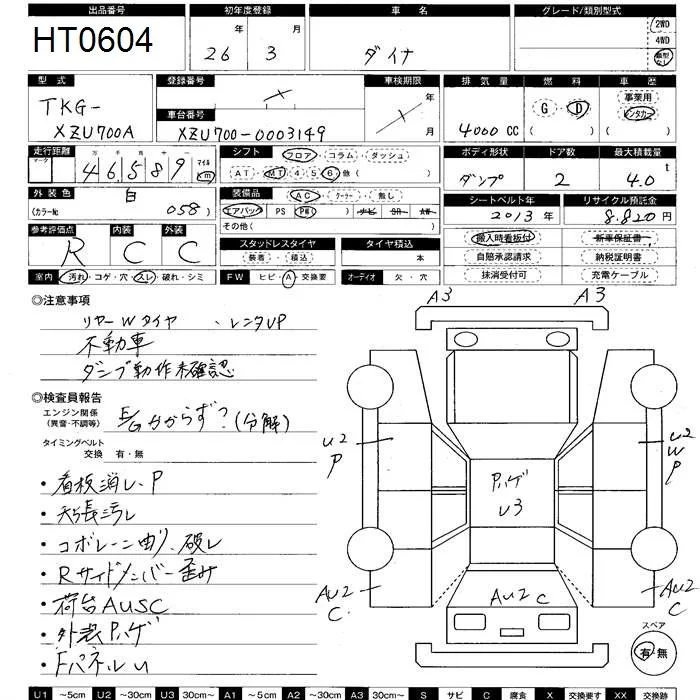 出品番号
HT0604
初年度登録
26 年 3 月
車名
ダイナ
グレード/類別型式
2WD
4WD
類型なし
型式
TKG-
XZU700A
登録番号
車台番号
XZU700-0003149
車検期限
年
月
排気量
4000 CC
燃料
G・D
( )
車歴
事業用
レンタカー
( )
走行距離
マーク 万 千 百 十 一
46,589 マイル km
シフト
フロア・コラム・ダッシュ
AT・MT(4 5 6)他( )
ボディ形状
ダンプ
ドア数
2
最大積載量
4.0 t
外装色
白
(カラーNo. 058)
装備品
AC・クーラー・無し
エアバック PS PW ナビ SR AW
その他( )
シートベルト年
2013 年
リサイクル預託金
8.820 円
参考評価点
R
内装
C
外装
C
スタッドレスタイヤ
(装着)・(積込)
タイヤ積込
本
搬入時看板付
新車保証書
自賠承認請求
納税証明書
抹消受付可
充電ケーブル
室内 汚れ・コゲ・穴・スレ・破れ・シミ
FW ヒビ・A・交換要
オーディオ 欠・穴
◎注意事項
リヤーWタイヤ 、レンタUP
不動車
ダンプ動作未確認
◎検査員報告
エンジン関係
(異音・不調等)
E/G分からず?(分解)
タイミングベルト
交換 有・無
・看板消し、P
・天張汚レ
・コボレーン曲り、破レ
・Rサイドメンバー歪み
・荷台AUSC
・外装Pハゲ
・FパネルU
A3
A3
U2
P
U2
W
P
Pハゲ
U3
AU2
C
AU2 C
AU2
C
スペア
有・無
U1 ～5cm U2 ～30cm U3 30cm～ A1 ～5cm A2 ～30cm A3 30cm～ S サビ C 腐食 X 交換要す XX 交換済み